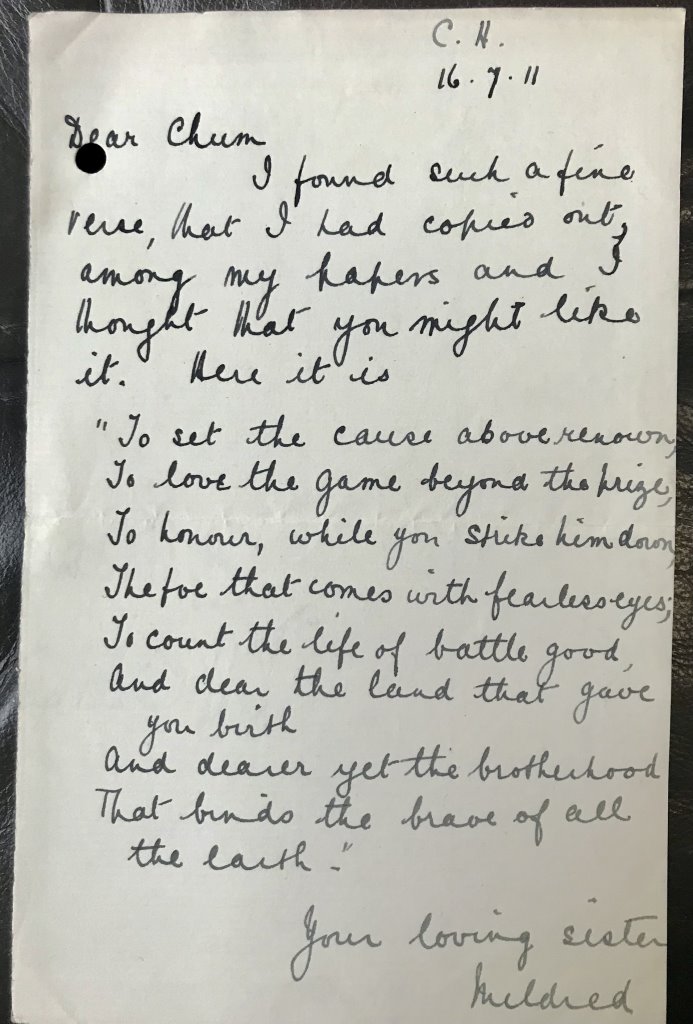 C. H.
16.7.11
Dear Chum
I found such a fine
verse, that I had copied out,
among my papers and I
thought that you might like
it. Here it is
"To set the cause above renown,
To love the game beyond the prize,
To honour, while you strike him down,
The foe that comes with fearless eyes;
To count the life of battle good,
And dear the land that gave
you birth
And dearer yet the brotherhood
That binds the brave of all
the earth."
Your loving sister
Mildred